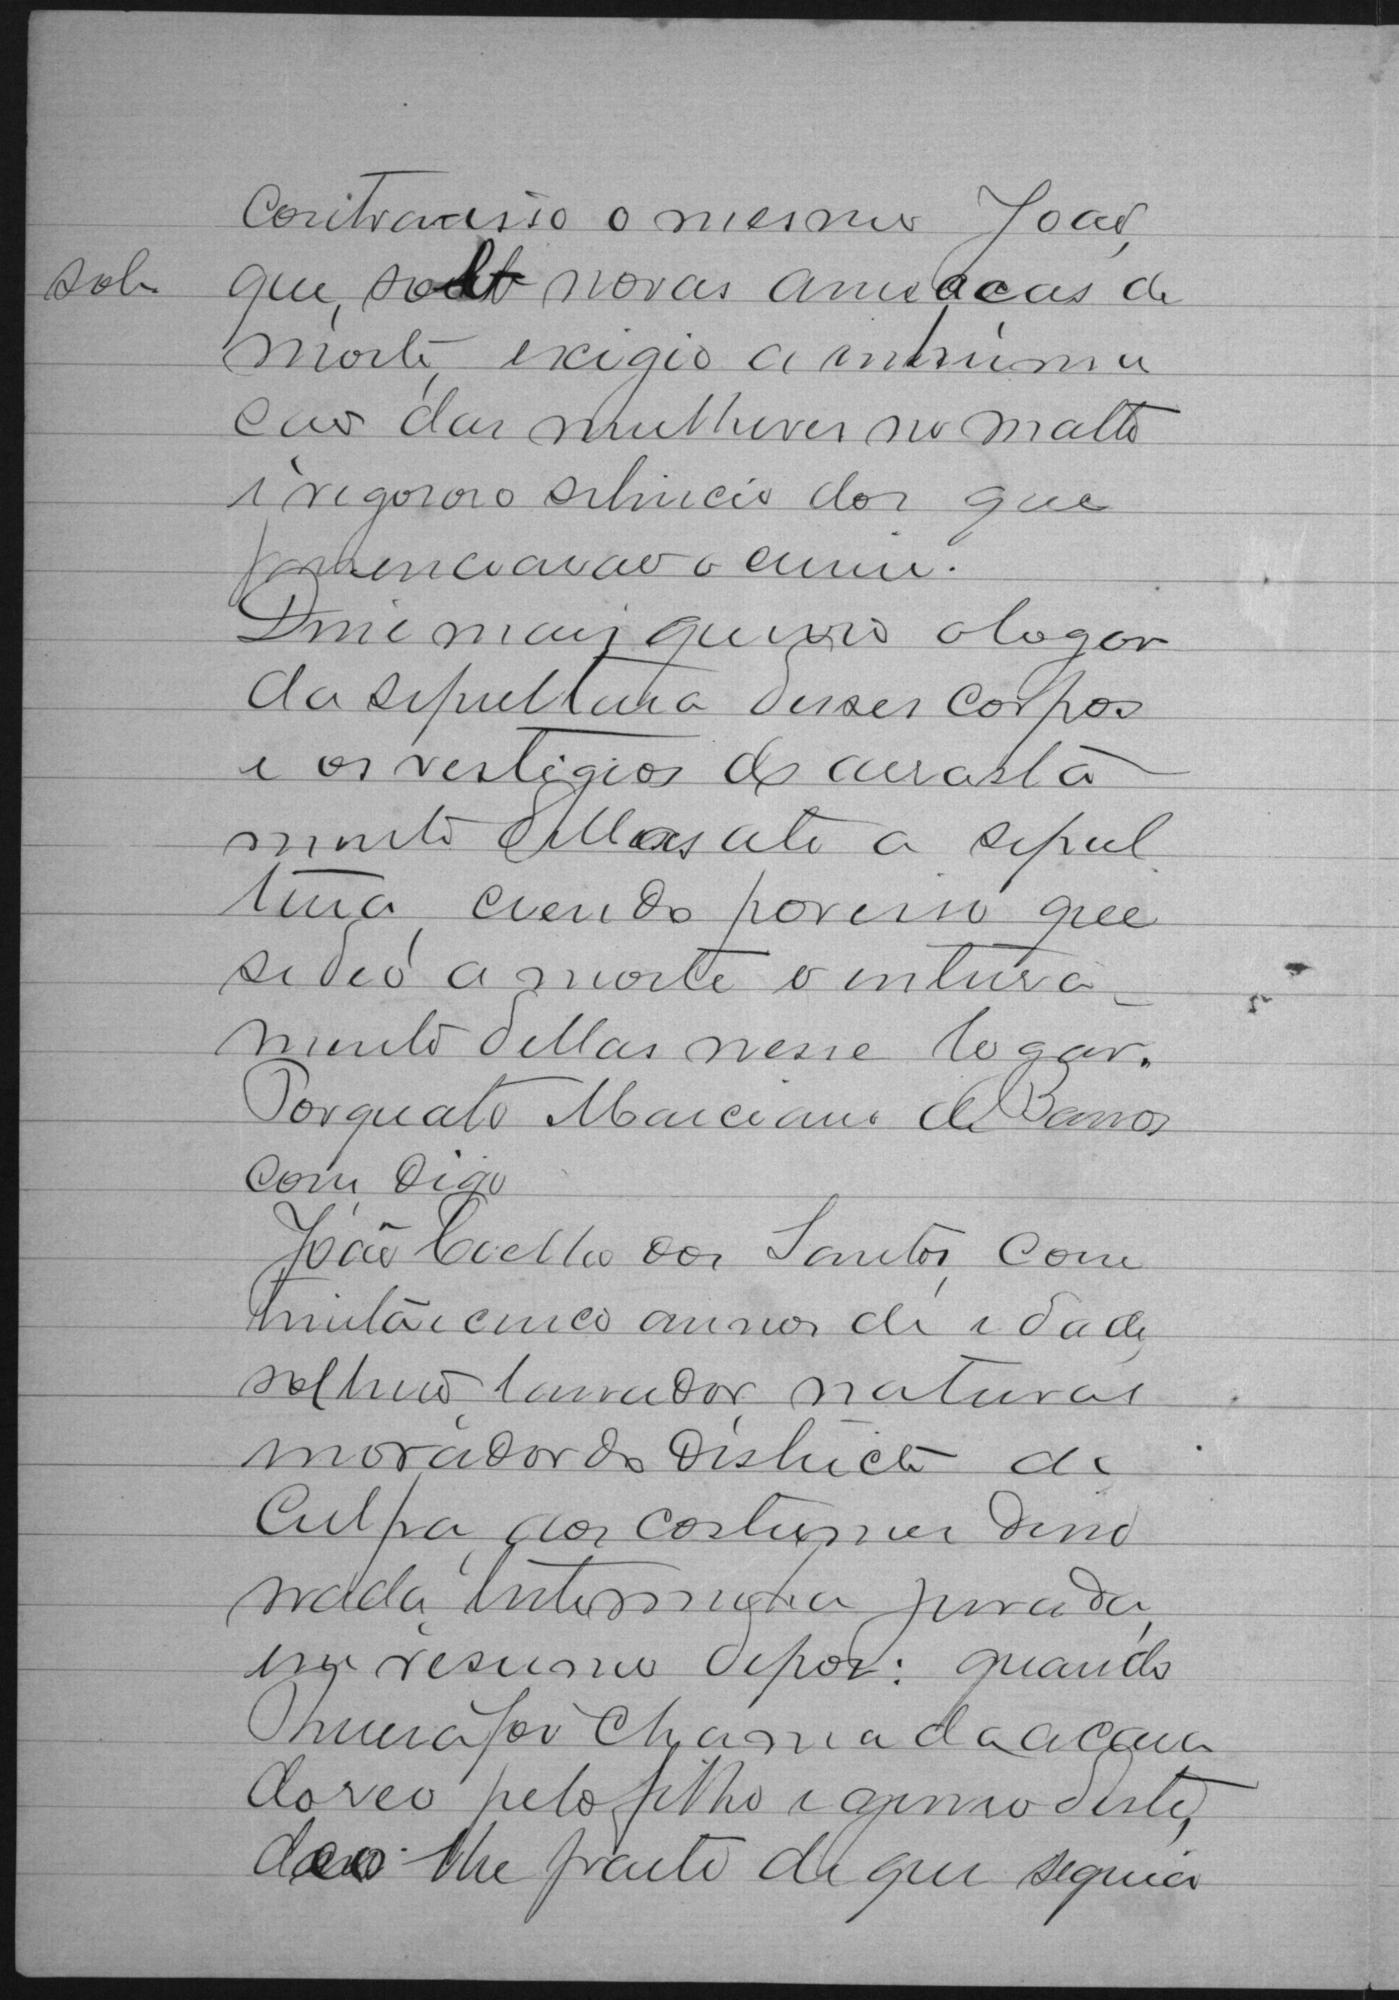 contra isso o mesmo João,
sob
que, sob novas ameaças de
morte, exigio a inhuma
cão das mulheres no matto
e rigoroso silencio dos que
presenciarão o crime.
Disse mais que vio o logar
da sepultura desses corpos
e os vestigios do arrasta-
mento dellas até a sepul
tura, crendo por isso que
se deo a morte e enterra-
mento dellas nesse logar.
Torquato Marciano de Barros
com, digo
João Coelho dos Santos, com
trinta e cinco annos de idade,
solteiro, lavrador, natural
morador do districto de
Culpa, aos costumes disse
nada, testemunha jurada,
em resumo depoz: quando
foi chamada a casa
do reo pelo filho e genro deste,
deo-lhe parte de que seguia